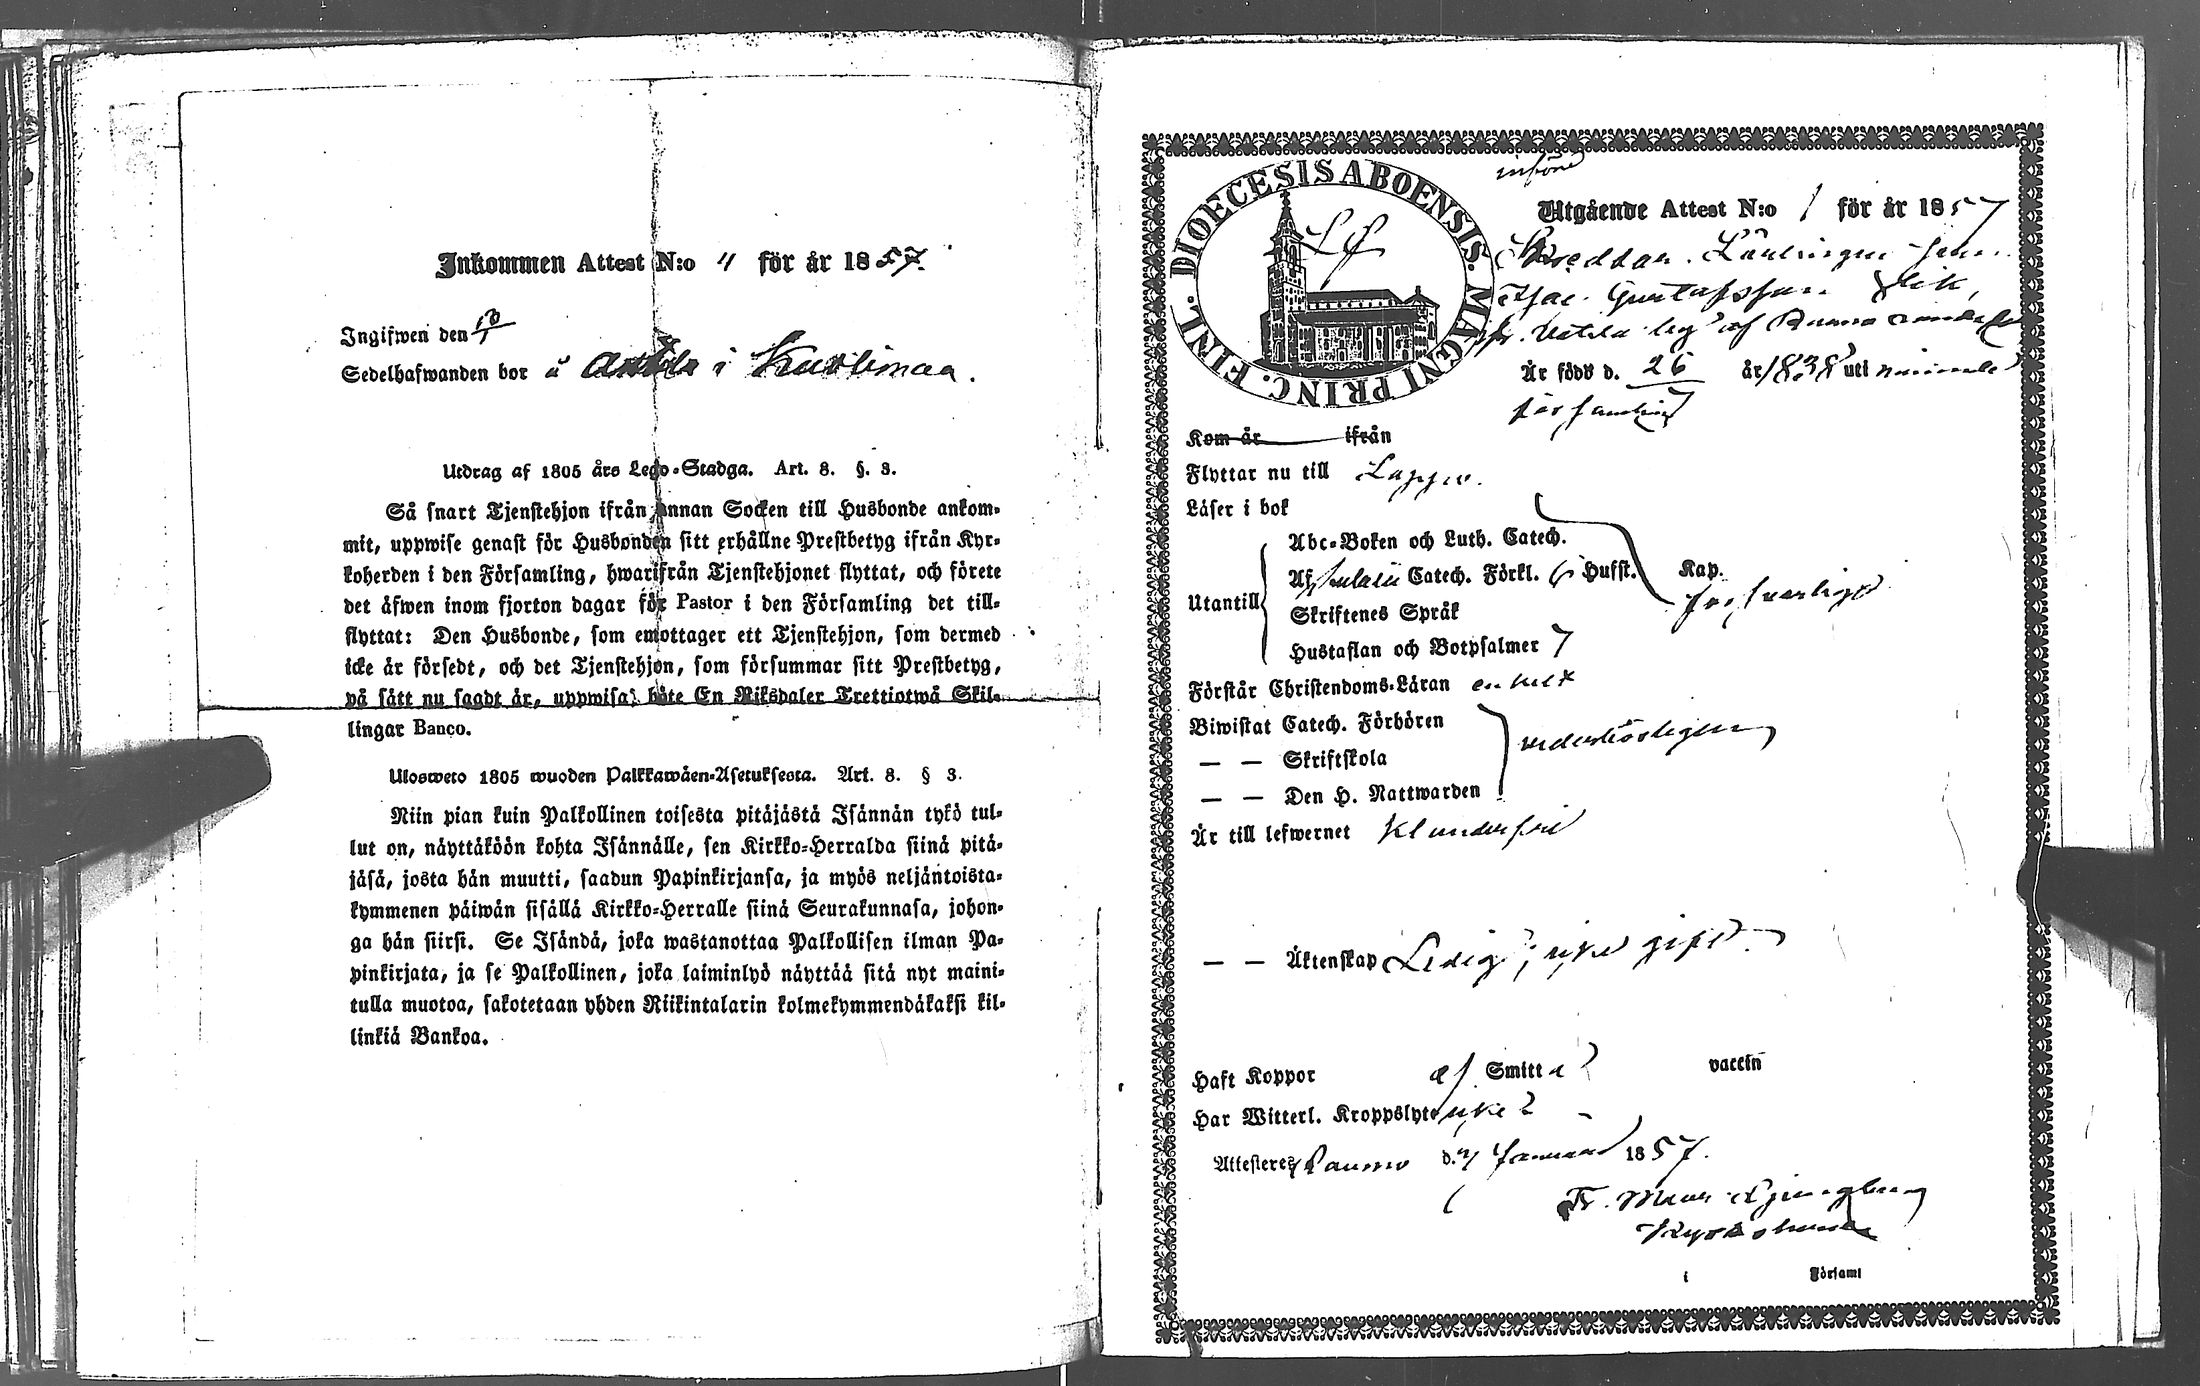 Inkommen Attest N:o 4 för år 1857.
Ingifwen den
Sedelhafwanden bor å i Kuolimaa.
Utdrag af 1805 års Lego-Stadga. Art. 8. §. 3.
Så snart Tjenstehjon ifrån annan Socken till Husbonde ankom-
mit, uppwise genast för Husbonden sitt erhållne Prestbetyg ifrån Kyr-
koherden i den Församling, hwarifrån Tjenstehjonet flyttat, och förete
det äfwen inom fjorton dagar för Pastor i den Församling det till-
flyttat: Den Husbonde, som emottager ett Tjenstehjon, som dermed
icke är försedt, och det Tjenstehjon, som försummar sitt Prestbetyg,
på sätt nu sagdt är, uppwisa, böte En Riksdaler Trettiotwå Skil-
lingar Banco.
Ulosweto 1805 wuoden Palkkawäen-Asetuksesta. Art. 8. § 3.
Niin pian kuin Palkollinen toisesta pitäjästä Isännän tykö tul-
lut on, näyttäköön kohta Isännälle, sen Kirkko-Herralda siinä pitä-
jäsä, josta hän muutti, saadun Papinkirjansa, ja myös neljäntoista-
kymmenen päiwän sisällä Kirkko-Herralle siinä Seurakunnasa, johon-
ga hän siirsi. Se Isändä, joka wastanottaa Palkollisen ilman Pa-
pinkirjata, ja se Palkollinen, joka laiminlyö näyttää sitä nyt maini-
tulla muotoa, sakotetaan yhden Riikintalarin kolmekymmendäkaksi kil-
linkiä Bankoa.
DIOECESIS ABOENSIS. MAGNI PRINC. FINL.
införd
Utgående Attest N:o 1 för år 1857
Skreddar Lärlingen
Isac Gustafsson
af Raumo
Är född d. 26 år 1838 uti
församling
Kom år ifrån
Flyttar nu till Lappo.
Läser i bok
Abc-Boken och Luth. Catech.
Utantill
Af Catech. Förkl. Hufst. Kap.
försvarligt
Skriftenes Språk
Hustaflan och Botpsalmer
Förstår Christendoms-Läran enkelt
Biwistat Catech. Förhören
— — Skriftskola
wederbörligen
— — Den H. Nattwarden
Är till lefwernet klanderfri
— — Äktenskap Ledig, icke gift
Haft Koppor af Smitta vaccin
Har Witterl. Kroppslyte icke
Attesteres Raumo d. 7 Januari 1857.
Fr. Maur. Ljungberg
Kyrkoherde
i Församl